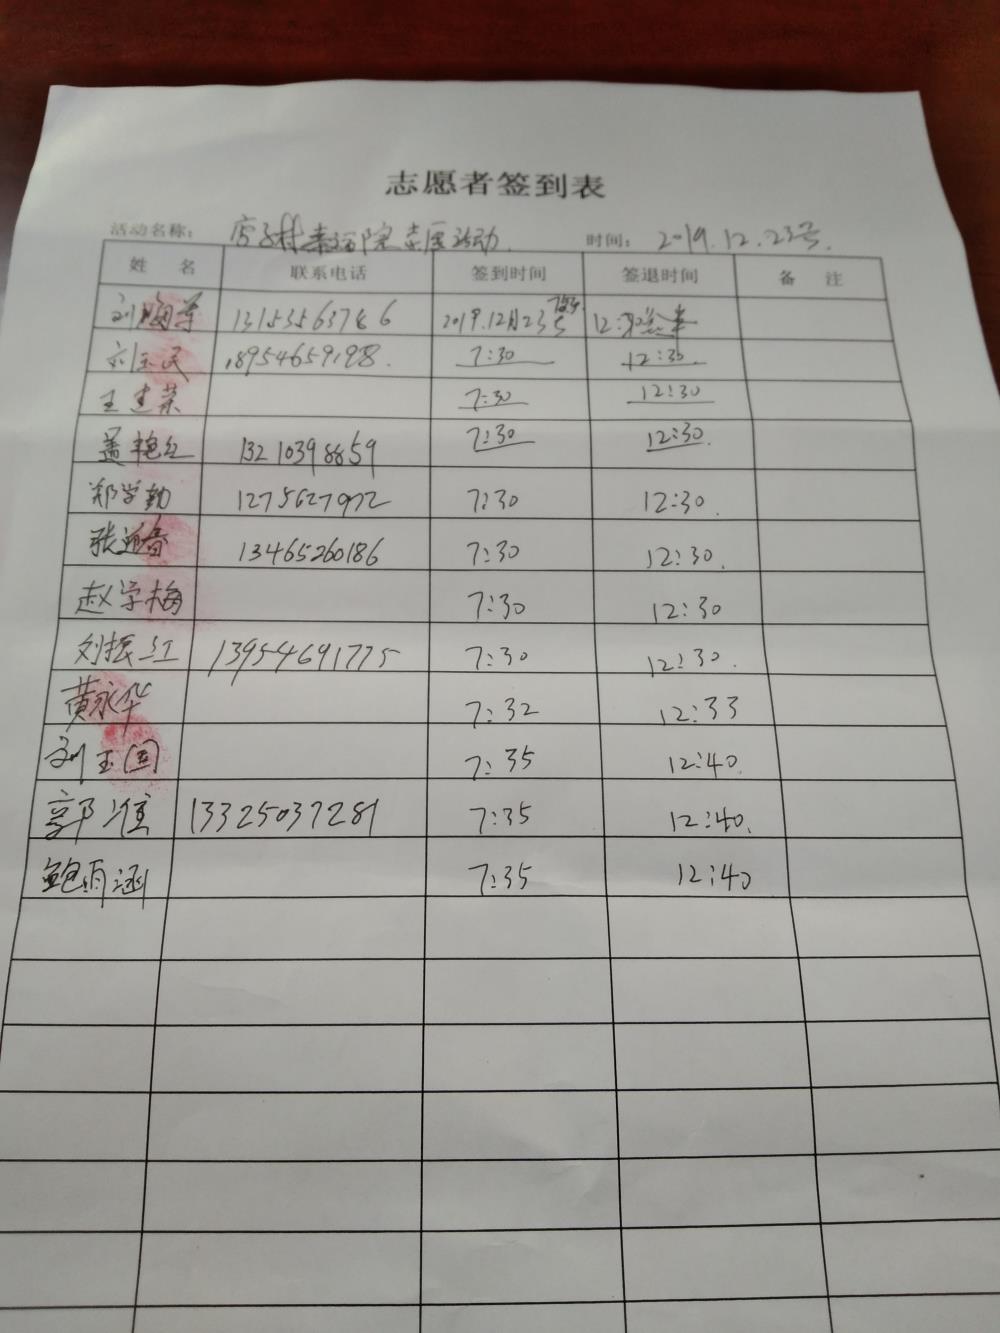 志愿者签到表
活动名称: 店子村幸福院志愿活动. 时间: 2019.12.23号.
姓 名 联系电话 签到时间 签退时间 备 注
刘海芹 2019.12月23号 12:
刘玉民 18954659198. 7:30 12:30.
王建荣 7:30 12:30
盖艳红 13210398859 7:30 12:30.
郑学勤 1275627972 7:30 12:30.
张迎春 13465260186 7:30 12:30.
赵学梅 7:30 12:30
刘振江 13954691775 7:30 12:30.
黄永华 7:32 12:33
刘玉国 7:35 12:40.
郭准 13325037281 7:35 12:40.
鲍雨涵 7:35 12:40